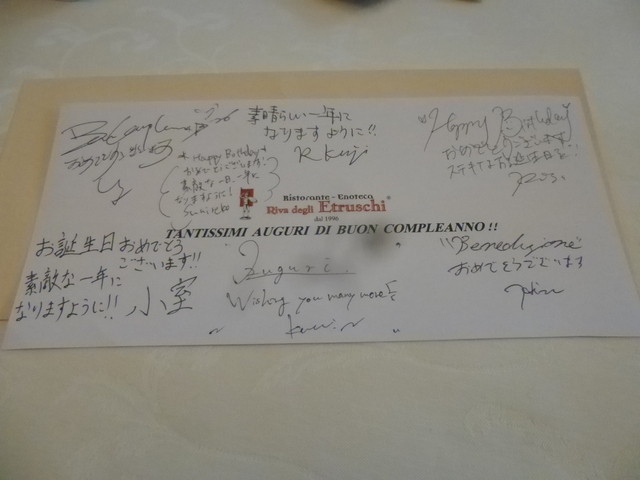 Buon Compleanno
おめでとうございます
素晴らしい一年に
なりますように!!
R Kuji
"Happy Birthday
おめでとうございます
ステキなお誕生日を!!
*Happy Birthday*
おめでとうございます!
素敵な一日、一年に
なりますように!
Ristorante - Enoteca
Riva degli Etruschi
dal 1996
TANTISSIMI AUGURI DI BUON COMPLEANNO!!
お誕生日おめでとう
ございます!!
素敵な一年に
なりますように!! 小室
"Auguri.
Wishing you many more!
"Benedizione"
おめでとうございます